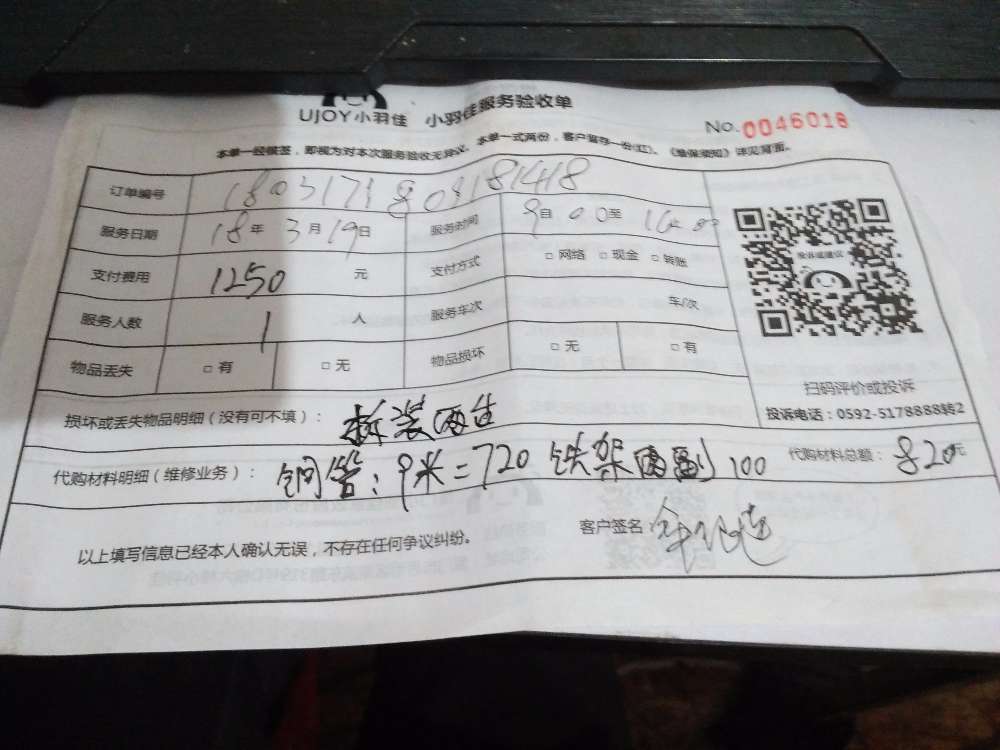 UJOY小羽佳 小羽佳服务验收单
No. 0046018
本单一经候签，即视为对本次服务验收无异议。本单一式两份，客户留存一份(红)。《维保须知》详见背面。
订单编号
服务日期 18年3月19日 服务时间 9自00至
支付费用 1250元 支付方式 □网络 □现金 □转账
服务人数 1人 服务车次 车/次
物品丢失 □有 □无 物品损坏 □无 □有
投诉或建议
扫码评价或投诉
投诉电话：0592-5178888转2
损坏或丢失物品明细（没有可不填）： 拆装两台
代购材料明细（维修业务）： 铜管：9米=720 铁架两副100 代购材料总额：820元
以上填写信息已经本人确认无误，不存在任何争议纠纷。 客户签名